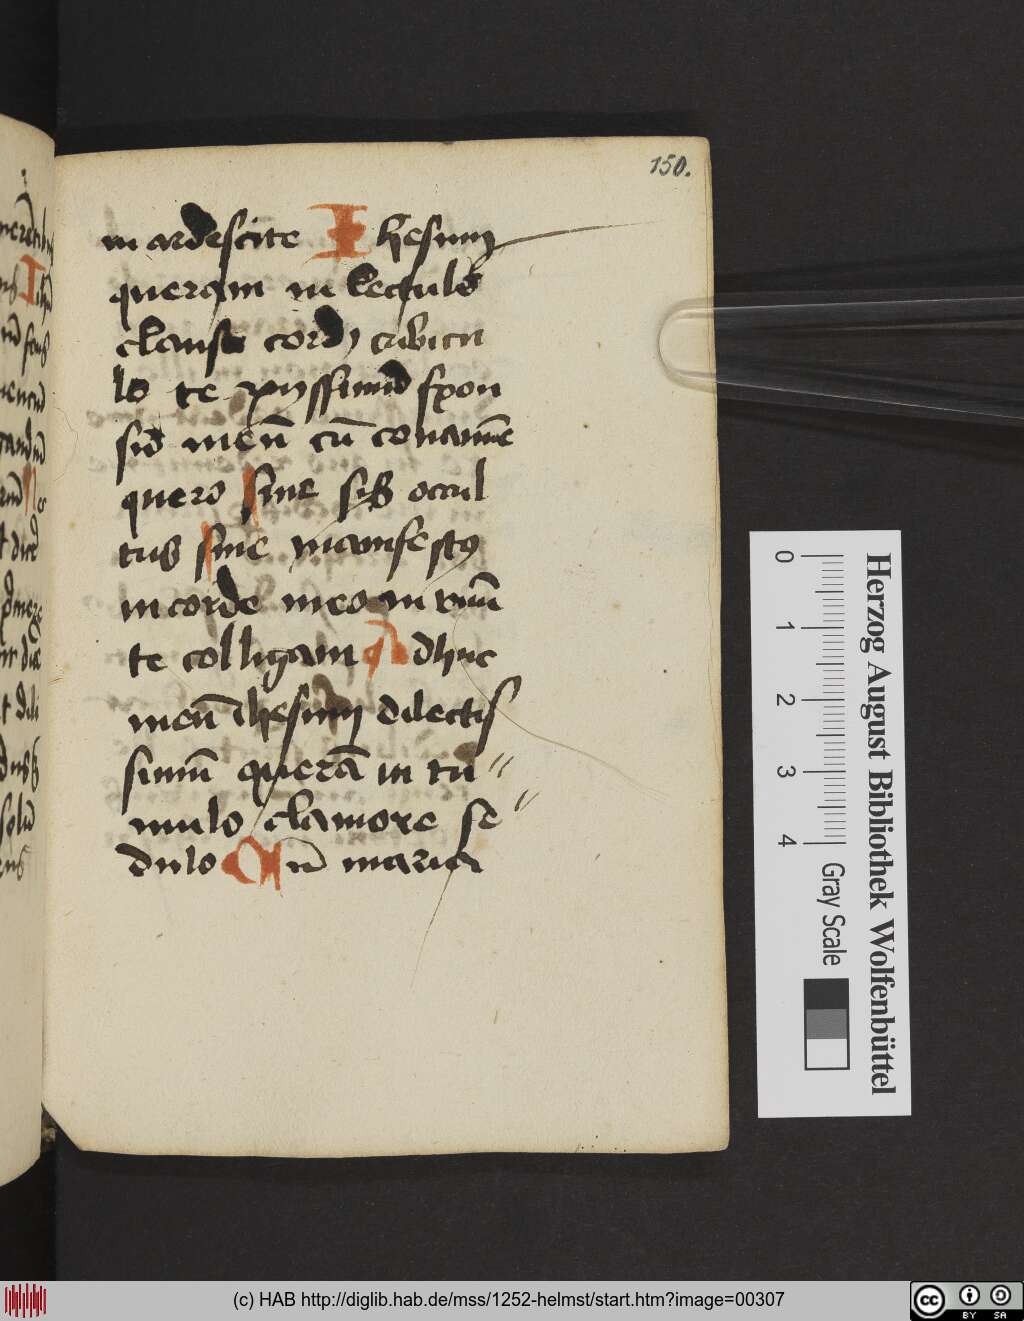 150.
inardescite Ihesum
queram in lectulo
clauso cordis cubicu
lo te pyssimū spon
sū meū cū conamīe
quero siue sis occul
tus siue manifestus
in corde meo in vnū
te colligam Adhuc
meū ihesum dilectis
simū querā in tu〃
mulo clamore se〃
dulo Cū maria
Herzog August Bibliothek Wolfenbüttel
0 1 2 3 4
Gray Scale
(c) HAB http://diglib.hab.de/mss/1252-helmst/start.htm?image=00307
cc BY SA